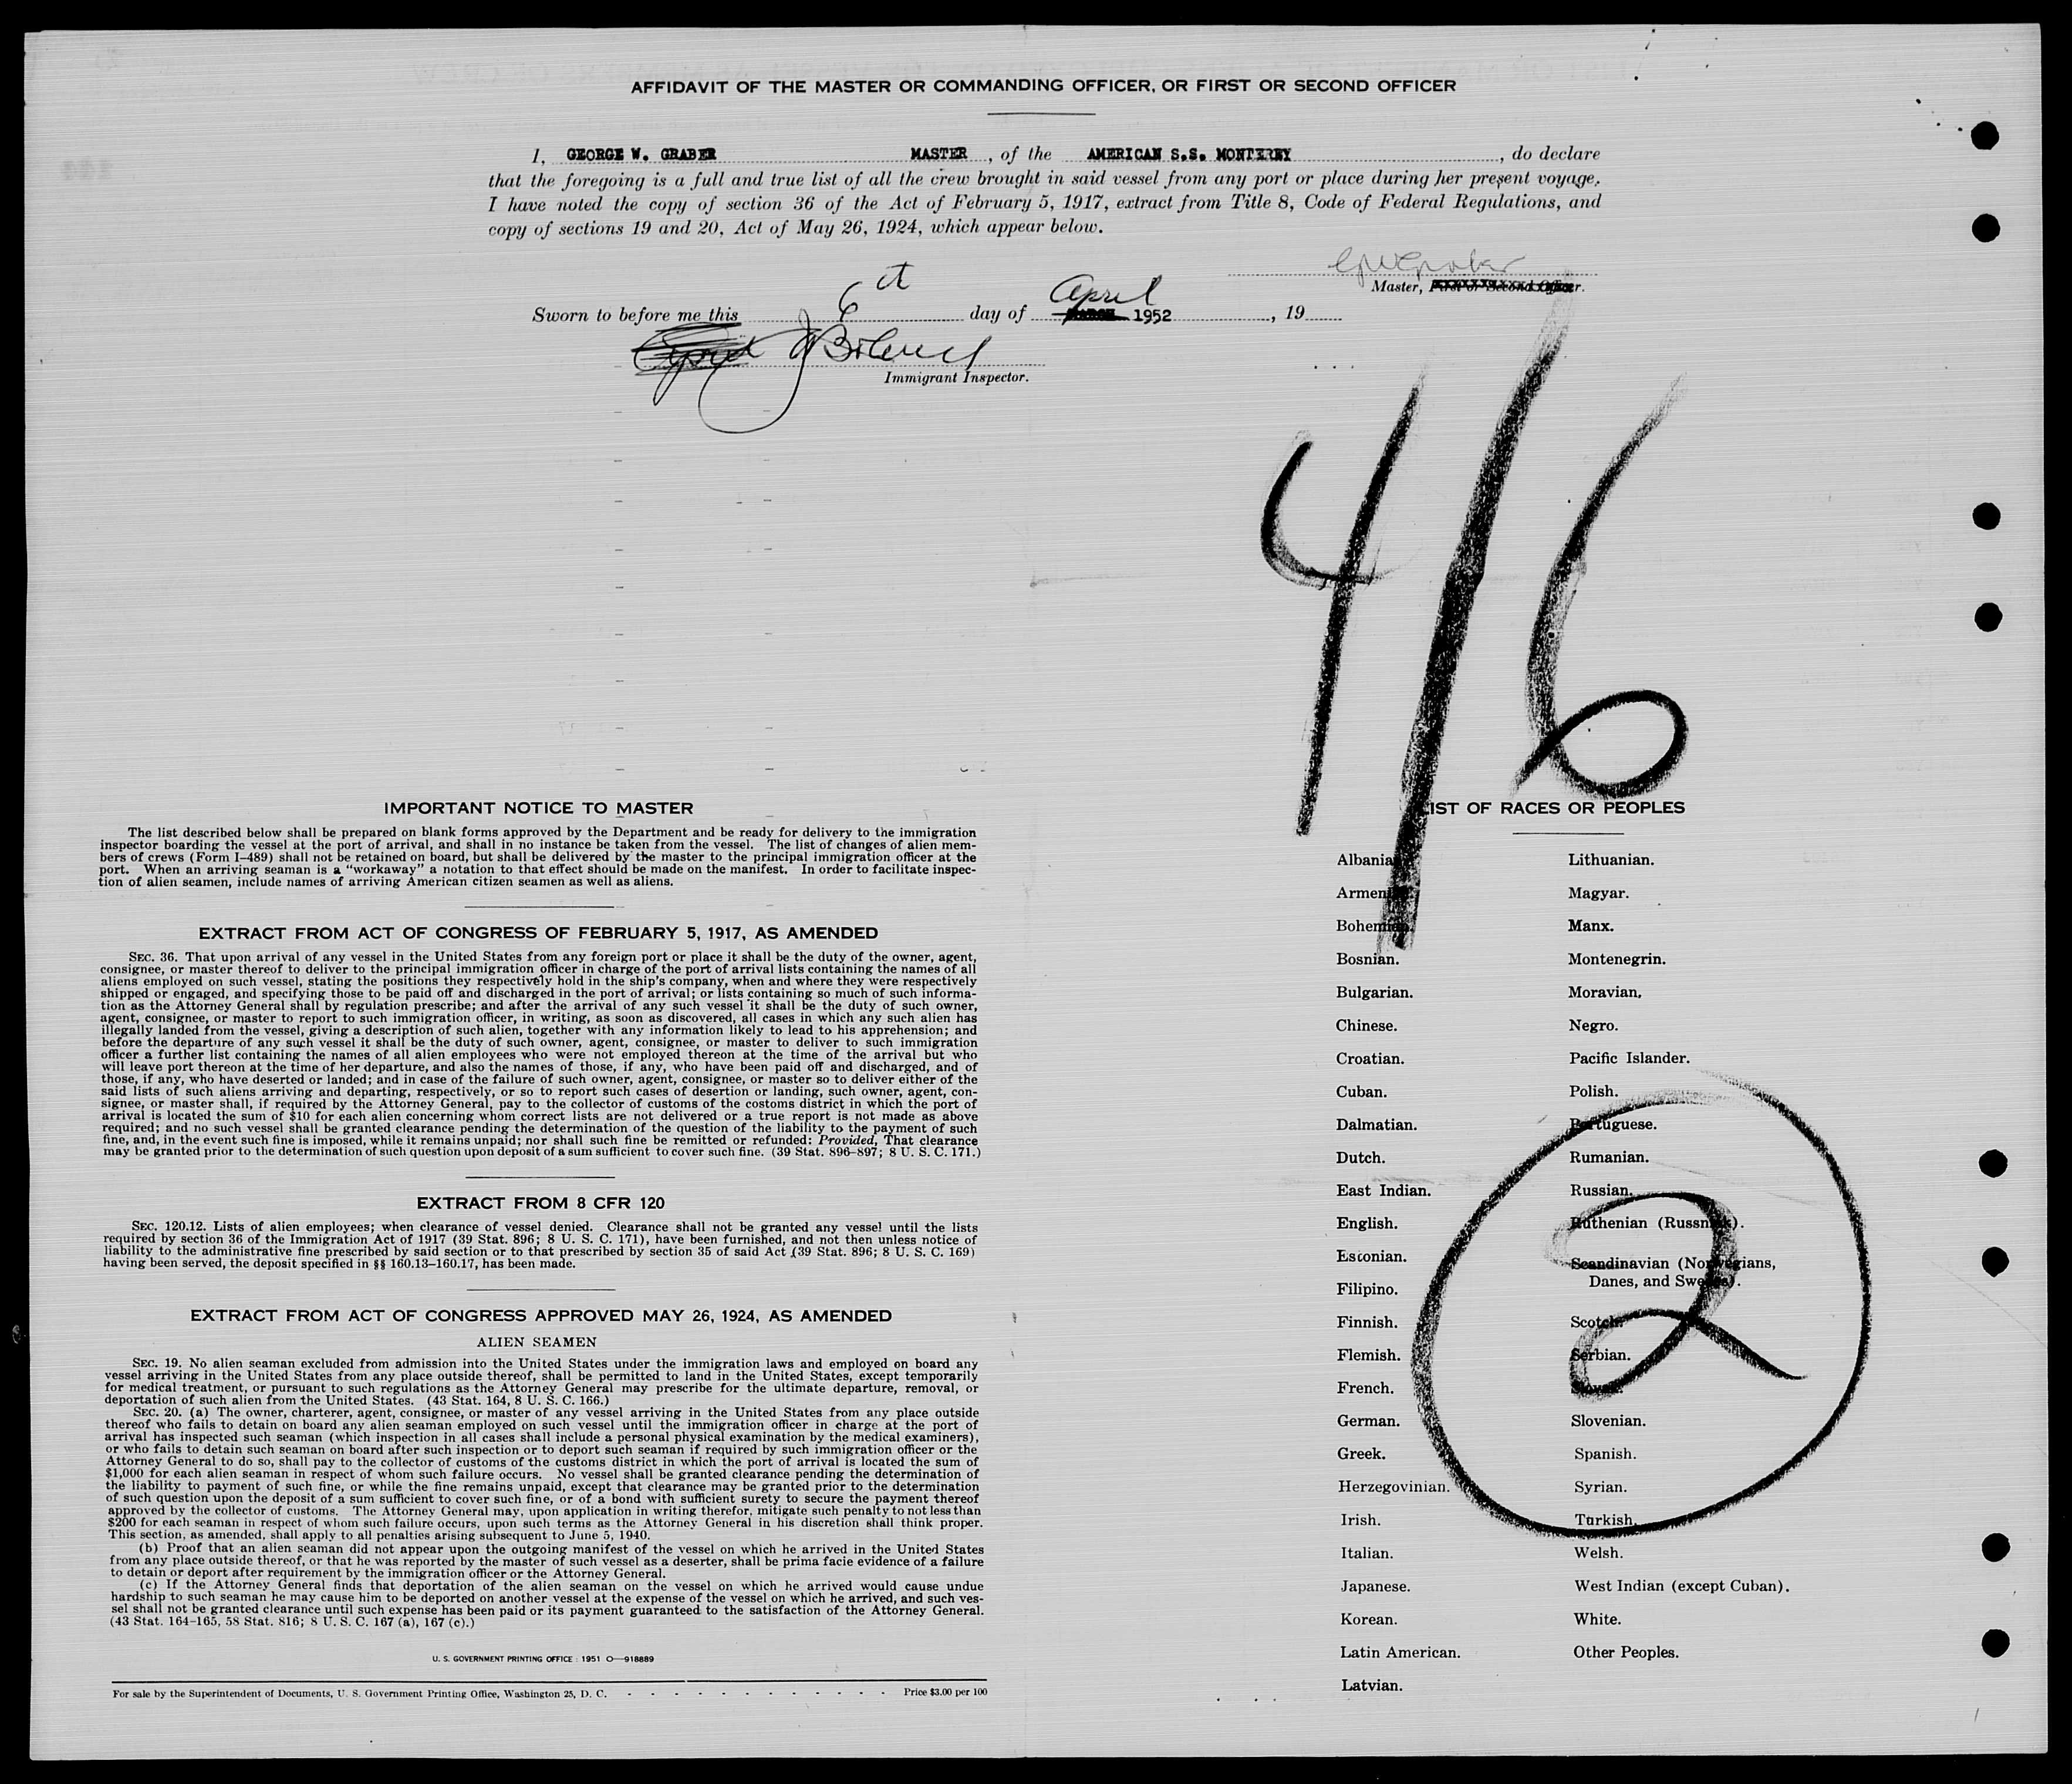 AFFIDAVIT OF THE MASTER OR COMMANDING OFFICER, OR FIRST OR SECOND OFFICER
I, GEORGE W. GRABER MASTER, of the AMERICAN S.S. MONTEREY, do declare
that the foregoing is a full and true list of all the crew brought in said vessel from any port or place during her present voyage.
I have noted the copy of section 36 of the Act of February 5, 1917, extract from Title 8, Code of Federal Regulations, and
copy of sections 19 and 20, Act of May 26, 1924, which appear below.
GWGraber
Master, First or Second Officer.
Sworn to before me this 6th day of April MARCH 1952, 19
Immigrant Inspector.
416
IMPORTANT NOTICE TO MASTER
The list described below shall be prepared on blank forms approved by the Department and be ready for delivery to the immigration
inspector boarding the vessel at the port of arrival, and shall in no instance be taken from the vessel. The list of changes of alien mem-
bers of crews (Form I-489) shall not be retained on board, but shall be delivered by the master to the principal immigration officer at the
port. When an arriving seaman is a "workaway" a notation to that effect should be made on the manifest. In order to facilitate inspec-
tion of alien seamen, include names of arriving American citizen seamen as well as aliens.
EXTRACT FROM ACT OF CONGRESS OF FEBRUARY 5, 1917, AS AMENDED
SEC. 36. That upon arrival of any vessel in the United States from any foreign port or place it shall be the duty of the owner, agent,
consignee, or master thereof to deliver to the principal immigration officer in charge of the port of arrival lists containing the names of all
aliens employed on such vessel, stating the positions they respectively hold in the ship's company, when and where they were respectively
shipped or engaged, and specifying those to be paid off and discharged in the port of arrival; or lists containing so much of such informa-
tion as the Attorney General shall by regulation prescribe; and after the arrival of any such vessel it shall be the duty of such owner,
agent, consignee, or master to report to such immigration officer, in writing, as soon as discovered, all cases in which any such alien has
illegally landed from the vessel, giving a description of such alien, together with any information likely to lead to his apprehension; and
before the departure of any such vessel it shall be the duty of such owner, agent, consignee, or master to deliver to such immigration
officer a further list containing the names of all alien employees who were not employed thereon at the time of the arrival but who
will leave port thereon at the time of her departure, and also the names of those, if any, who have been paid off and discharged, and of
those, if any, who have deserted or landed; and in case of the failure of such owner, agent, consignee, or master so to deliver either of the
said lists of such aliens arriving and departing, respectively, or so to report such cases of desertion or landing, such owner, agent, con-
signee, or master shall, if required by the Attorney General, pay to the collector of customs of the customs district in which the port of
arrival is located the sum of $10 for each alien concerning whom correct lists are not delivered or a true report is not made as above
required; and no such vessel shall be granted clearance pending the determination of the question of the liability to the payment of such
fine, and, in the event such fine is imposed, while it remains unpaid; nor shall such fine be remitted or refunded: Provided, That clearance
may be granted prior to the determination of such question upon deposit of a sum sufficient to cover such fine. (39 Stat. 896-897; 8 U. S. C. 171.)
EXTRACT FROM 8 CFR 120
SEC. 120.12. Lists of alien employees; when clearance of vessel denied. Clearance shall not be granted any vessel until the lists
required by section 36 of the Immigration Act of 1917 (39 Stat. 896; 8 U. S. C. 171), have been furnished, and not then unless notice of
liability to the administrative fine prescribed by said section or to that prescribed by section 35 of said Act (39 Stat. 896; 8 U. S. C. 169)
having been served, the deposit specified in §§ 160.13-160.17, has been made.
EXTRACT FROM ACT OF CONGRESS APPROVED MAY 26, 1924, AS AMENDED
ALIEN SEAMEN
SEC. 19. No alien seaman excluded from admission into the United States under the immigration laws and employed on board any
vessel arriving in the United States from any place outside thereof, shall be permitted to land in the United States, except temporarily
for medical treatment, or pursuant to such regulations as the Attorney General may prescribe for the ultimate departure, removal, or
deportation of such alien from the United States. (43 Stat. 164, 8 U. S. C. 166.)
SEC. 20. (a) The owner, charterer, agent, consignee, or master of any vessel arriving in the United States from any place outside
thereof who fails to detain on board any alien seaman employed on such vessel until the immigration officer in charge at the port of
arrival has inspected such seaman (which inspection in all cases shall include a personal physical examination by the medical examiners),
or who fails to detain such seaman on board after such inspection or to deport such seaman if required by such immigration officer or the
Attorney General to do so, shall pay to the collector of customs of the customs district in which the port of arrival is located the sum of
$1,000 for each alien seaman in respect of whom such failure occurs. No vessel shall be granted clearance pending the determination of
the liability to payment of such fine, or while the fine remains unpaid, except that clearance may be granted prior to the determination
of such question upon the deposit of a sum sufficient to cover such fine, or of a bond with sufficient surety to secure the payment thereof
approved by the collector of customs. The Attorney General may, upon application in writing therefor, mitigate such penalty to not less than
$200 for each seaman in respect of whom such failure occurs, upon such terms as the Attorney General in his discretion shall think proper.
This section, as amended, shall apply to all penalties arising subsequent to June 5, 1940.
(b) Proof that an alien seaman did not appear upon the outgoing manifest of the vessel on which he arrived in the United States
from any place outside thereof, or that he was reported by the master of such vessel as a deserter, shall be prima facie evidence of a failure
to detain or deport after requirement by the immigration officer or the Attorney General.
(c) If the Attorney General finds that deportation of the alien seaman on the vessel on which he arrived would cause undue
hardship to such seaman he may cause him to be deported on another vessel at the expense of the vessel on which he arrived, and such ves-
sel shall not be granted clearance until such expense has been paid or its payment guaranteed to the satisfaction of the Attorney General.
(43 Stat. 164-165, 58 Stat. 816; 8 U. S. C. 167 (a), 167 (c).)
U. S. GOVERNMENT PRINTING OFFICE : 1951 O—918889
For sale by the Superintendent of Documents, U. S. Government Printing Office, Washington 25, D. C. - - - - - - - - - - - - Price $3.00 per 100
LIST OF RACES OR PEOPLES
Albanian.
Armenian.
Bohemian.
Bosnian.
Bulgarian.
Chinese.
Croatian.
Cuban.
Dalmatian.
Dutch.
East Indian.
English.
Estonian.
Filipino.
Finnish.
Flemish.
French.
German.
Greek.
Herzegovinian.
Irish.
Italian.
Japanese.
Korean.
Latin American.
Latvian.
Lithuanian.
Magyar.
Manx.
Montenegrin.
Moravian.
Negro.
Pacific Islander.
Polish.
Portuguese.
Rumanian.
Russian.
Ruthenian (Russniak).
Scandinavian (Norwegians,
Danes, and Swedes).
Scotch.
Serbian.
Slovak.
Slovenian.
Spanish.
Syrian.
Turkish.
Welsh.
West Indian (except Cuban).
White.
Other Peoples.
2